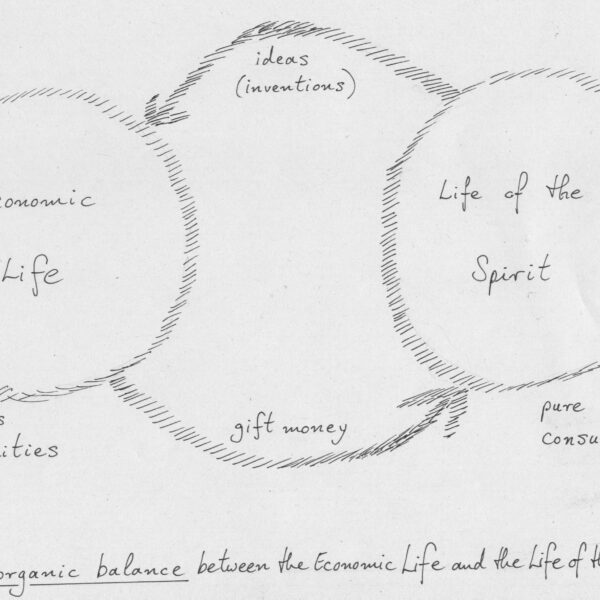 ideas
(inventions)
conomic
Life
Life of the
Spirit
gift money
s
ities
pure
consu
organic balance between the Economic Life and the Life of th